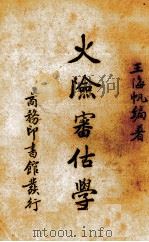 王海帆編著
火險審估學
商務印書館發行
www.toutu8.com